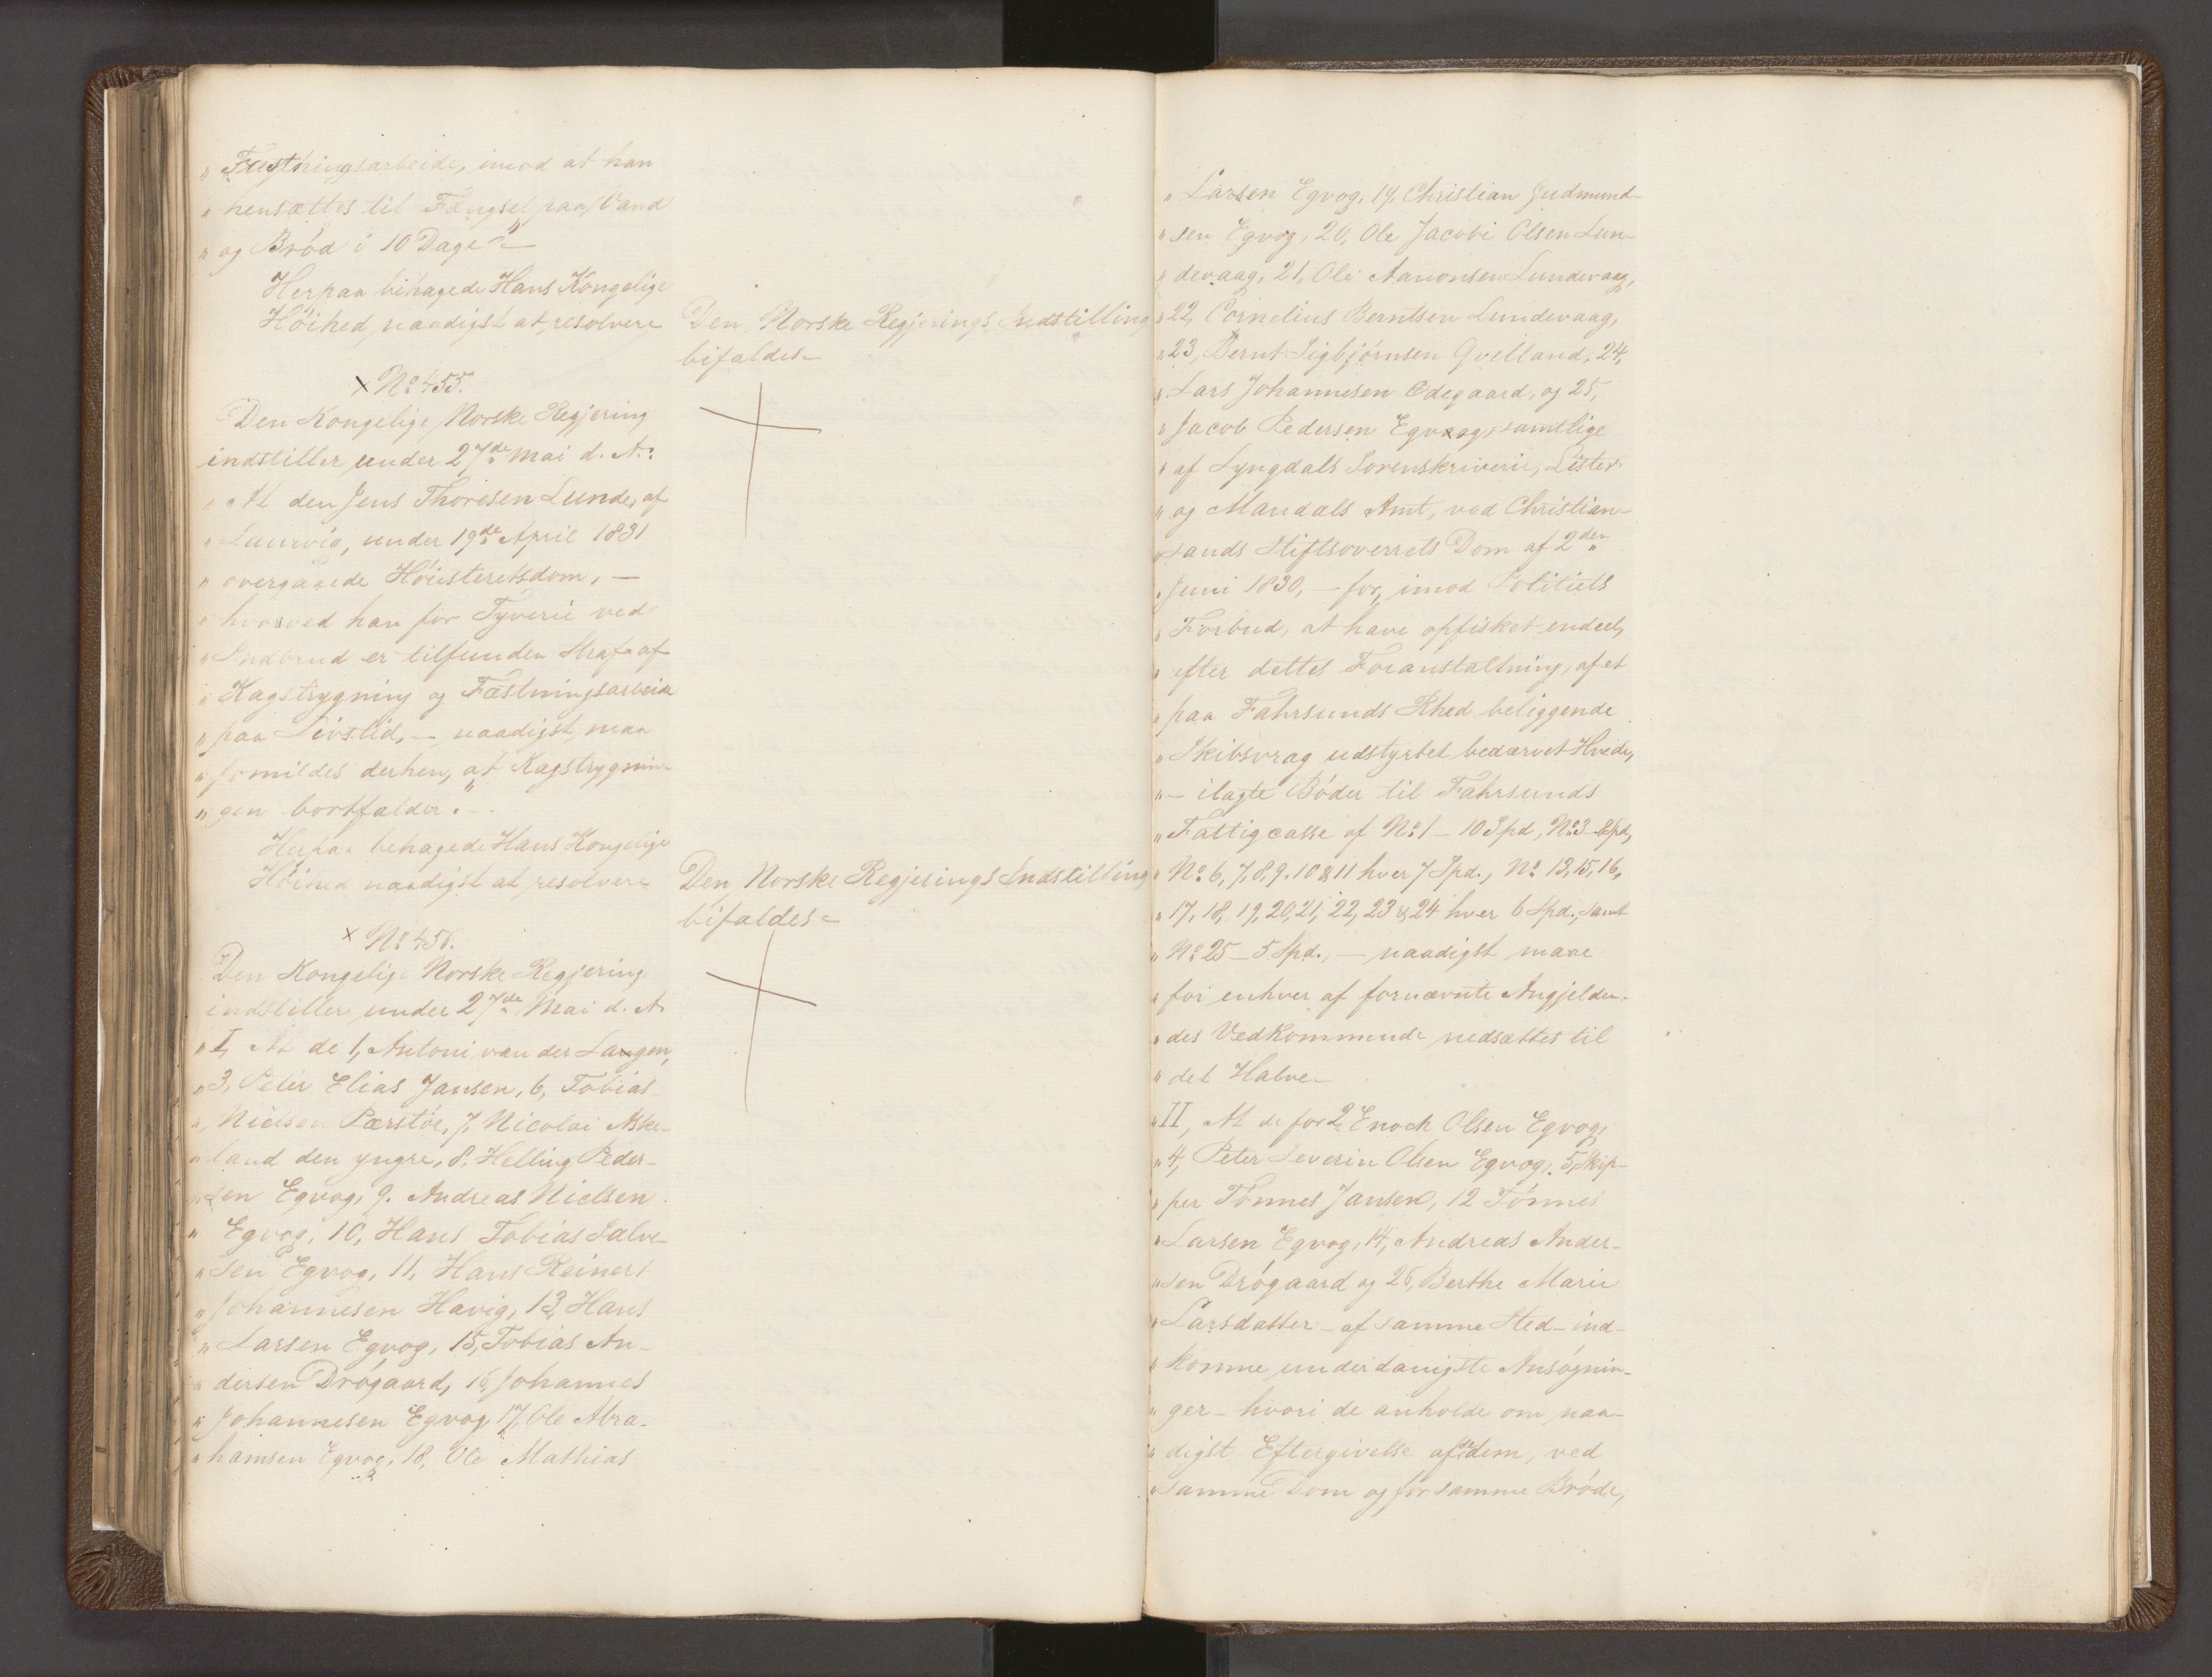 " Fæstningsarbeide, imod at han
" hensættes til Fængsel paa Vand
" og Brød i 10 Dage"
Herpaa behagede Hans Kongelige
Høihed naadigst at resolvere
Den Norske Regjerings Indstilling
bifaldes
x No 455.
Den Kongelige Norske Regjering
indstiller under 27de Mai d. A.:
" At den Jens Thoresen Lunde, af
" Laurvig, under 19de April 1831
" overgaaede Høiesteretsdom, —
" hvorved han for Tyverie ved
" Indbrud er tilfunden Straf af
" Kagstrygning og Fæstningsarbeide
" paa Livstid, — naadigst maa
" formildes derhen, at Kagstrygnin-
" gen bortfalder. —
Herpaa behagede Hans Kongelige
Høihed naadigst at resolvere
Den Norske Regjerings Indstilling
bifaldes
x No 456.
Den Kongelige Norske Regjering
indstiller under 27de Mai d. A.
" I, At de 1, Antoni van der Langen,
" 3, Peter Elias Jansen, 6, Tobias
" Nielsen Pærstøe, 7, Nicolai Aske-
" land den yngre, 8, Helling Peder-
" sen Egvog, 9. Andreas Nielsen
" Egvog, 10, Hans Tobias Salve-
" sen Egvog, 11, Hans Reinert
" Johannesen Havig, 13, Hans
" Larsen Egvog, 15, Tobias An-
" dersen Drøgaard, 16, Johannes
" Johannesen Egvog 17, Ole Abra-
" hamsen Egvog, 18, Ole Mathias
" Larsen Egvog, 19, Christian Gudmund-
" sen Egvog, 20, Ole Jacobi Olsen Lun-
" devaag, 21, Ole Aanonsen Lundevaag,
" 22, Cornelius Berntsen Lundevaag,
" 23, Bernt Sigbjørnsen Qvelland, 24,
" Lars Johannesen Ødegaard, og 25,
" Jacob Pedersen Egvaag, samtlige
" af Lyngdals Sorenskriverie, Lister
" og Mandals Amt, ved Christian-
" sands Stiftsoverrets Dom af 2den
" Juni 1830, — for, imod Politiets
" Forbud, at have opfisket endeel,
" efter dettes Foranstaltning, af et
" paa Fahrsunds Rhed beliggende
" Skibsvrag udstyrtet bedærvet Hvede,
" — ilagte Bøder til Fahrsunds
" Fattigcasse af No 1 — 10 Spd, No 3 8 Spd,
" No 6, 7, 8, 9. 10 & 11 hver 7 Spd., No 13, 15, 16,
" 17, 18, 19, 20, 21, 22, 23 & 24 hver 6 Spd., samt
" No 25 — 5 Spd., — naadigst maae
" for enhver af fornævnte Angjelden-
" des Vedkommende nedsættes til
" det Halve
" II, At de for 2, Enoch Olsen Egvog,
" 4, Peter Severin Olsen Egvog, 5, Skip-
" per Tønnes Jansen, 12 Tønnes
" Larsen Egvog, 14, Andreas Ander-
" sen Drøgaard og 26, Berthe Marie
" Larsdatter — af samme Sted — ind-
" komne underdanigste Ansøgnin-
" ger — hvori de anholde om naa-
" digst Eftergivelse af de dem, ved
" samme Dom og for samme Brøde,